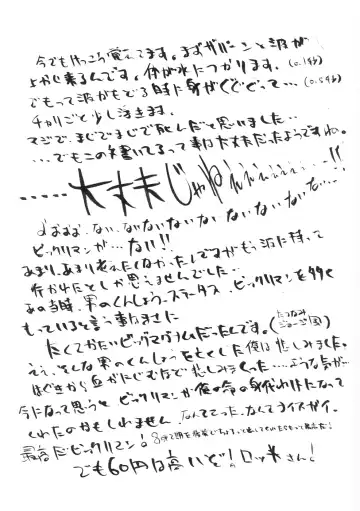 今でもけっこう覚えてます。まずザバーンと波が
よかし来るんです。体が水につかります。(0.1秒)
でもって波がもどる時に身がぐぐぐって…(0.5秒)
チャリごと少し浮きます。
マジで、まじでまじで死んだと思いました…
…でもこの文書いてるって事は大丈夫だったようですね。
……大丈夫じゃねんぇぇぇぇぇ…!!
ない、ないないないないないないないな…
ビックリマンが…ない!!
あまり、あまり考えたくなかったんですがもう波に持って
行かれたとしか思えませんでした…
あの当時、男のくんしょう、ステータス、ビックリマンを多く
もっていると言う事はまさに
たくてかたいビッグマグナムだったんです。(たつなみジョージ風)
ええ、そんな男のくんしょうをもくした俺は悲しみました。
はぐきから血がにじむほど悲しみました…ような気が…
今になって思うと、ビックリマンが俺の命の身代わりになって
くれたのかもしれません。なんてこった、なんてナイスガイ。
最高だビックリマン!
でも60円は高いぞ!ロッ米さん!